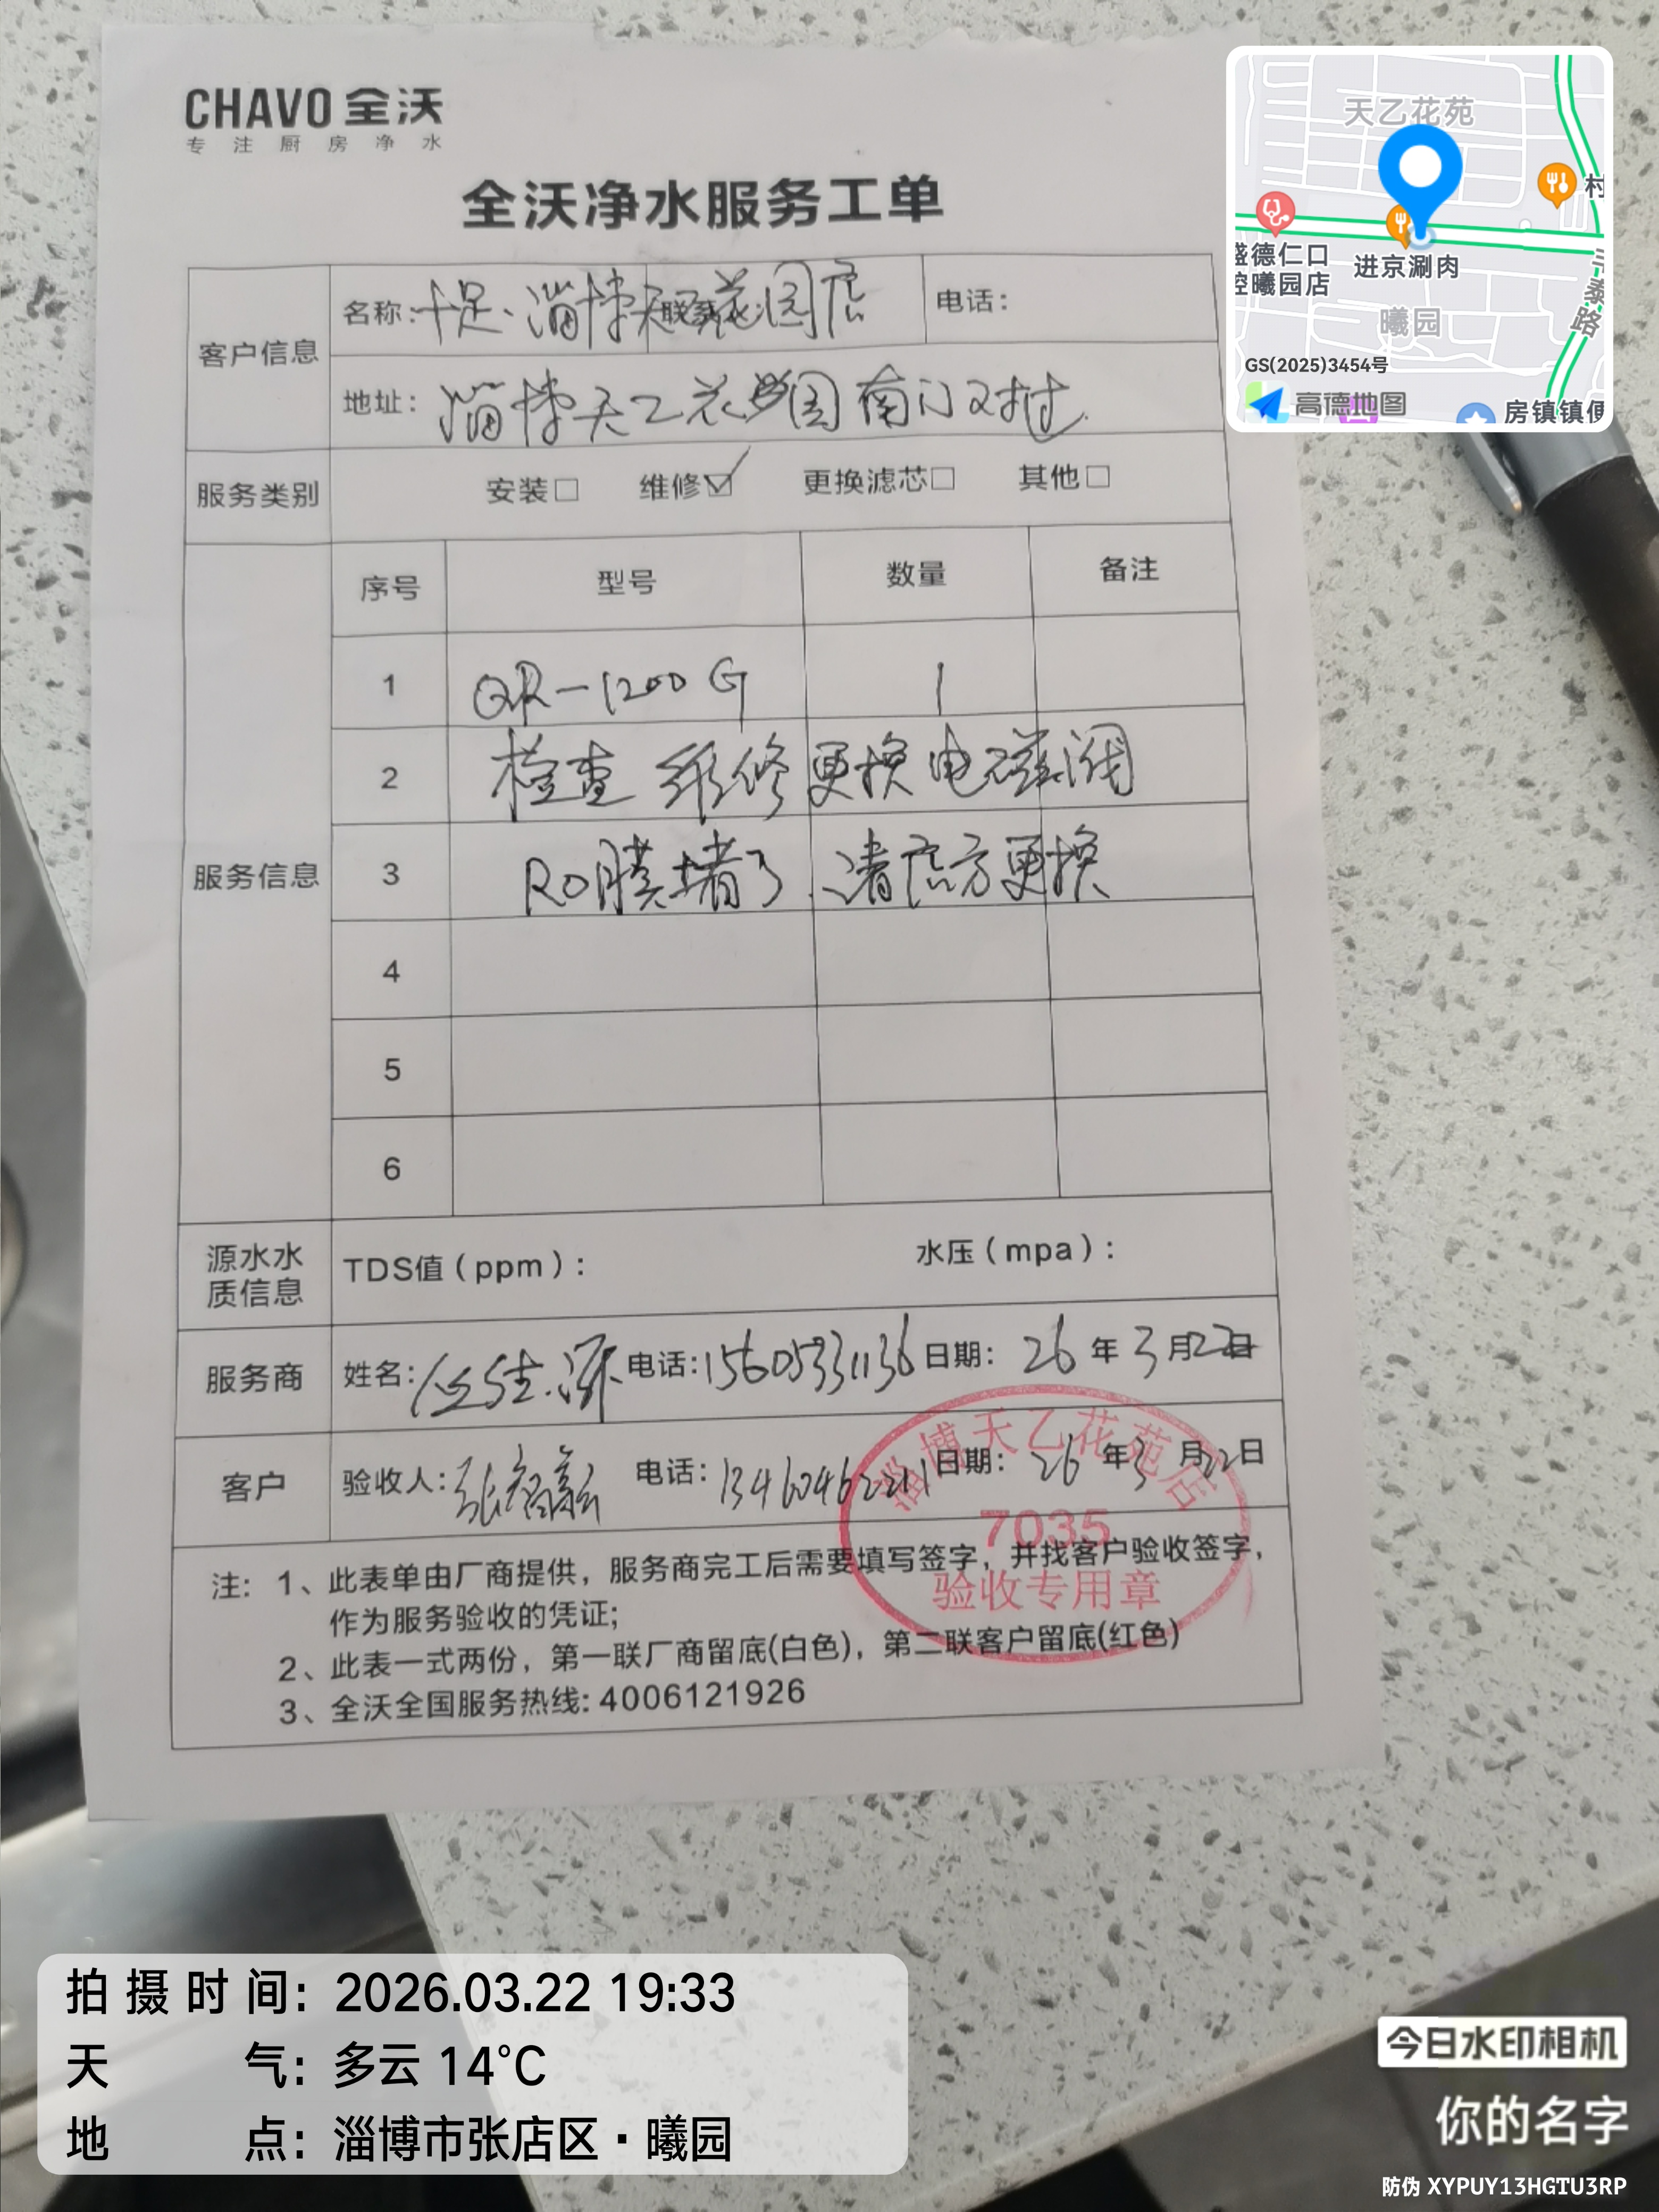 CHAVO 全沃
专注厨房净水
全沃净水服务工单
客户信息
名称：十足·淄博天乙花园店
电话：
地址：淄博天乙花园南门对过
服务类别
安装□ 维修☑ 更换滤芯□ 其他□
服务信息
序号 型号 数量 备注
1 QR-1200G 1
2 检查 维修 更换电磁阀
3 RO膜堵了.请店方更换
4
5
6
源水水质信息
TDS值（ppm）： 水压（mpa）：
服务商
姓名： 电话：15605331136 日期：26年3月22日
客户
验收人：张 电话：13460462211 日期：26年3月22日
淄博天乙花苑店
7035
验收专用章
注：1、此表单由厂商提供，服务商完工后需要填写签字，并找客户验收签字，
作为服务验收的凭证；
2、此表一式两份，第一联厂商留底(白色)，第二联客户留底(红色)
3、全沃全国服务热线：4006121926
天乙花苑
村
盛德仁口
控曦园店
进京涮肉
曦园
丰泰路
GS(2025)3454号
高德地图
房镇镇便
拍摄时间：2026.03.22 19:33
天气：多云 14°C
地点：淄博市张店区·曦园
今日水印相机
你的名字
防伪 XYPUY13HGTU3RP